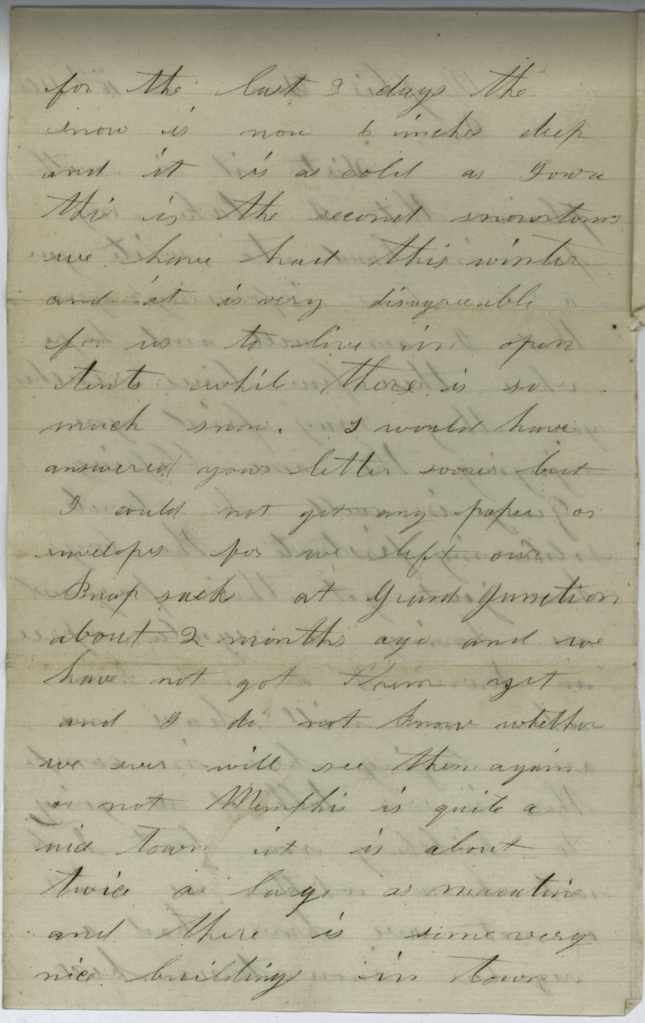 for the last 3 days the
snow is now 6 inches deep
and it is as cold as Iowa
this is the second snowstorm
we have had this winter
and it is very disagreeable
for us to live in open
tents while there is so
much snow. I would have
answered your letter sooner but
I could not get any paper or
envelopes for we left our
Knap sacks at Grand Junction
about 2 months ago and we
have not got them yet
and I do not know whether
we ever will see them again
or not Memphis is quite a
nice town it is about
twice as large as muscatine
and there is some very
nice buildings in town